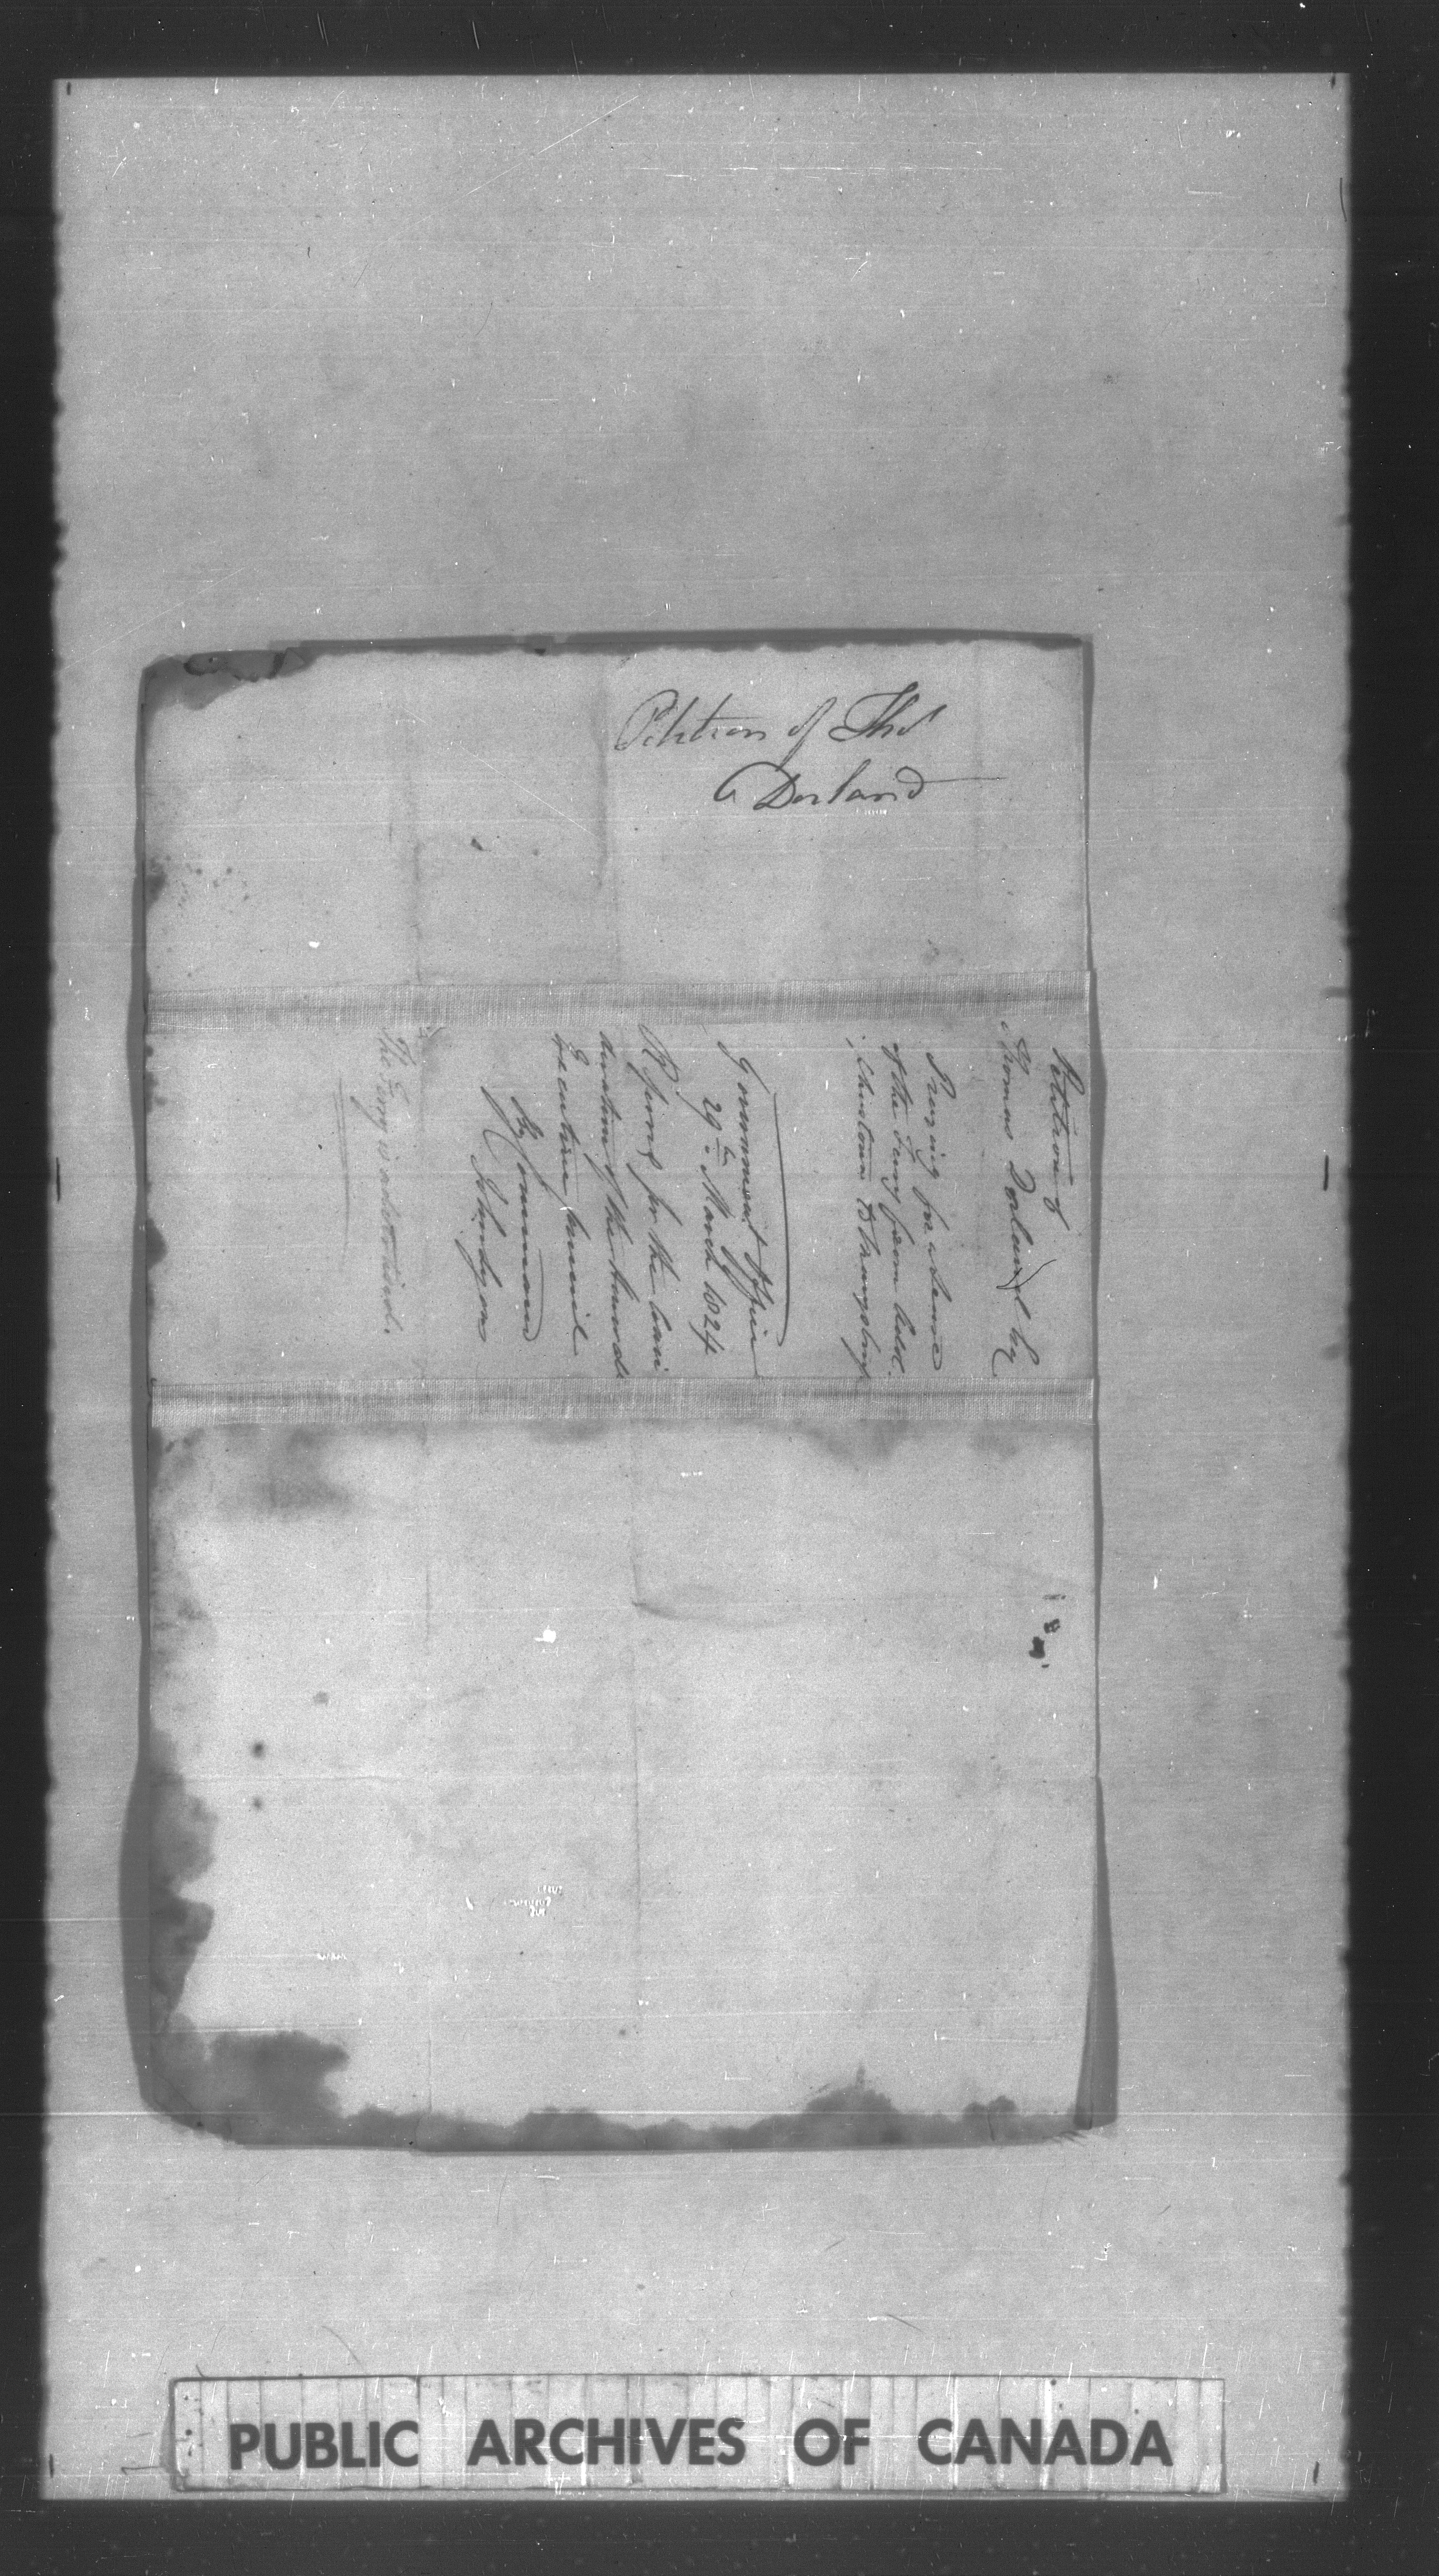 Petition of Thos
Dorland
Petition of
Thomas Dorland by
Praying for a lease
of the Ferry from
to
Government Office
29th March 1824
Referred for the Consi
deration of the Honorable
Executive Council
By Command
The Ferry is advertised.
PUBLIC ARCHIVES OF CANADA